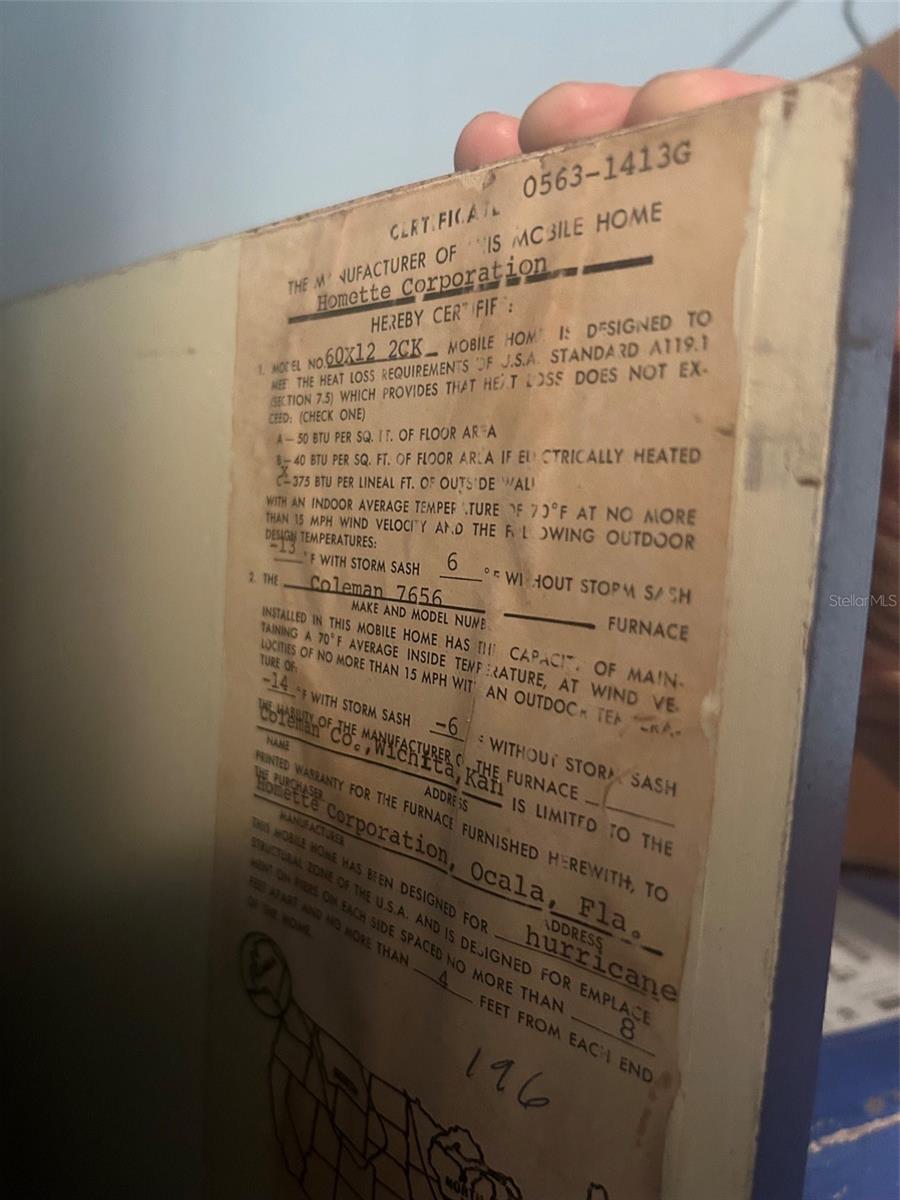 0563-1413G
CERTIFICATE
THE MANUFACTURER OF THIS MOBILE HOME
Homette Corporation
HEREBY CERTIFIES:
1. MODEL NO. 60X12 2CK MOBILE HOME IS DESIGNED TO
MEET THE HEAT LOSS REQUIREMENTS OF U.S.A. STANDARD A119.1
(SECTION 7.5) WHICH PROVIDES THAT HEAT LOSS DOES NOT EX-
CEED: (CHECK ONE)
A-50 BTU PER SQ. FT. OF FLOOR AREA
B-40 BTU PER SQ. FT. OF FLOOR AREA IF ELECTRICALLY HEATED
X
C-375 BTU PER LINEAL FT. OF OUTSIDE WALL
WITH AN INDOOR AVERAGE TEMPERATURE OF 70°F AT NO MORE
THAN 15 MPH WIND VELOCITY AND THE FOLLOWING OUTDOOR
DESIGN TEMPERATURES:
-13 °F WITH STORM SASH 6 °F WITHOUT STORM SASH
2. THE Coleman 7656 FURNACE
MAKE AND MODEL NUMB
INSTALLED IN THIS MOBILE HOME HAS THE CAPACITY OF MAIN-
TAINING A 70°F AVERAGE INSIDE TEMPERATURE, AT WIND VE-
LOCITIES OF NO MORE THAN 15 MPH WITH AN OUTDOOR TEMPERA-
TURE OF:
-14 °F WITH STORM SASH -6 °F WITHOUT STORM SASH
THE LIABILITY OF THE MANUFACTURER OF THE FURNACE
Coleman Co., Wichita, Kan IS LIMITED TO THE
NAME ADDRESS
PRINTED WARRANTY FOR THE FURNACE FURNISHED HEREWITH, TO
THE PURCHASER
Homette Corporation, Ocala, Fla.
MANUFACTURER ADDRESS
THIS MOBILE HOME HAS BEEN DESIGNED FOR hurricane
STRUCTURAL ZONE OF THE U.S.A. AND IS DESIGNED FOR EMPLACE
MENT ON PIERS ON EACH SIDE SPACED NO MORE THAN 8
FEET APART AND NO MORE THAN 4 FEET FROM EACH END
OF THE HOME.
196
NORTH
StellarMLS